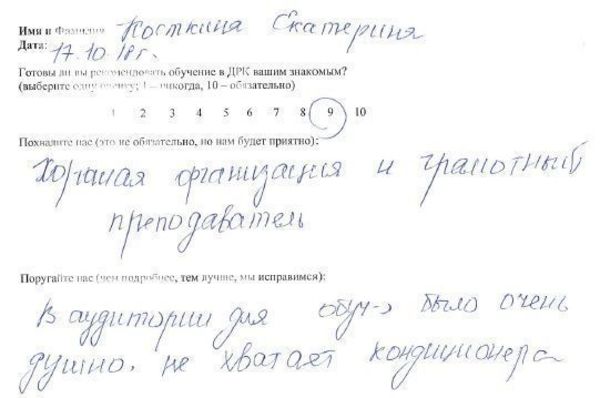 Имя и Фамилия Косткина Екатерина
Дата: 17.10.18г.
Готовы ли вы рекомендовать обучение в ДРК вашим знакомым?
(выберите одну оценку; 1 – никогда, 10 – обязательно)
1 2 3 4 5 6 7 8 9 10
Похвалите нас (это не обязательно, но нам будет приятно):
Хорошая организация и грамотный
преподаватель
Поругайте нас (чем подробнее, тем лучше, мы исправимся):
В аудитории для обуч-> было очень
душно. не хватает кондиционера